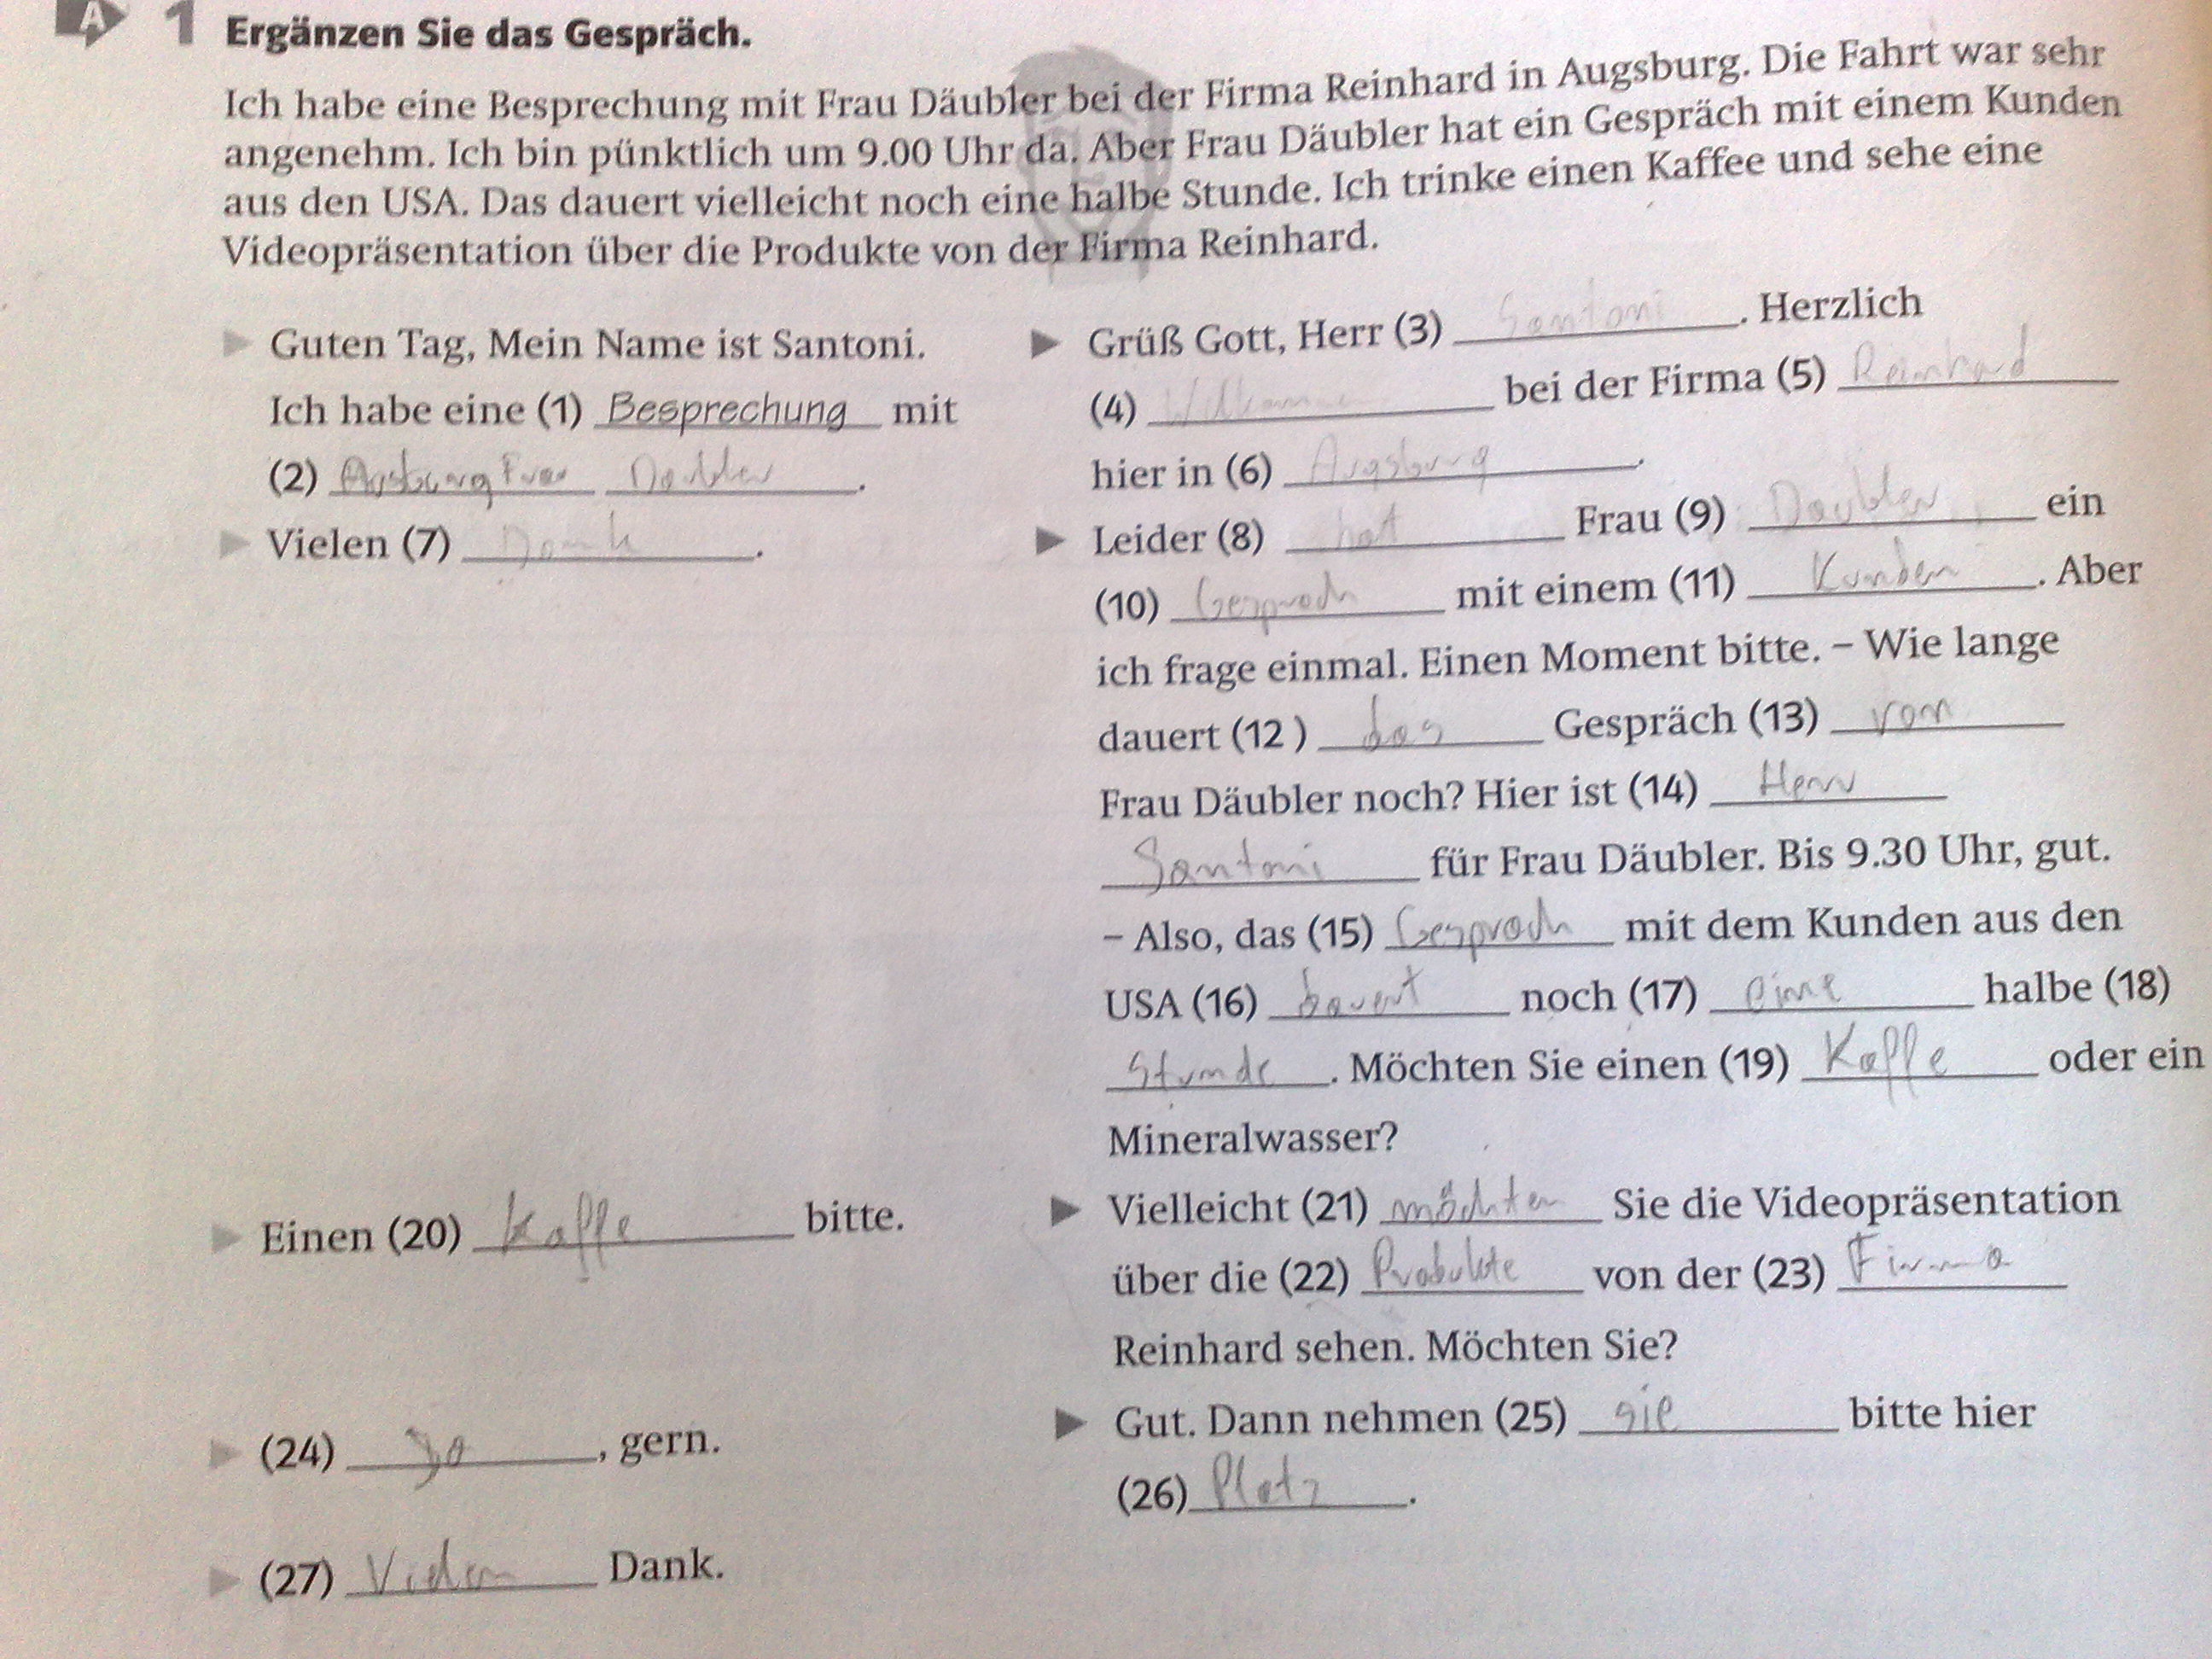 A 1 Ergänzen Sie das Gespräch.
Ich habe eine Besprechung mit Frau Däubler bei der Firma Reinhard in Augsburg. Die Fahrt war sehr
angenehm. Ich bin pünktlich um 9.00 Uhr da. Aber Frau Däubler hat ein Gespräch mit einem Kunden
aus den USA. Das dauert vielleicht noch eine halbe Stunde. Ich trinke einen Kaffee und sehe eine
Videopräsentation über die Produkte von der Firma Reinhard.
Guten Tag, Mein Name ist Santoni.
Ich habe eine (1) Besprechung mit
(2) Frau Daubler.
Vielen (7) Dank.
Grüß Gott, Herr (3) Santoni. Herzlich
(4) Willkommen bei der Firma (5) Reinhard
hier in (6) Augsburg.
Leider (8) hat Frau (9) Daubler ein
(10) Gesprach mit einem (11) Kunden. Aber
ich frage einmal. Einen Moment bitte. – Wie lange
dauert (12 ) das Gespräch (13) von
Frau Däubler noch? Hier ist (14) Herr
Santoni für Frau Däubler. Bis 9.30 Uhr, gut.
– Also, das (15) Gesprach mit dem Kunden aus den
USA (16) dauert noch (17) eine halbe (18)
Stunde. Möchten Sie einen (19) Kaffe oder ein
Mineralwasser?
Einen (20) Kaffe bitte.
Vielleicht (21) möchten Sie die Videopräsentation
über die (22) Produkte von der (23) Firma
Reinhard sehen. Möchten Sie?
(24) Ja, gern.
Gut. Dann nehmen (25) sie bitte hier
(26) Platz.
(27) Vielen Dank.